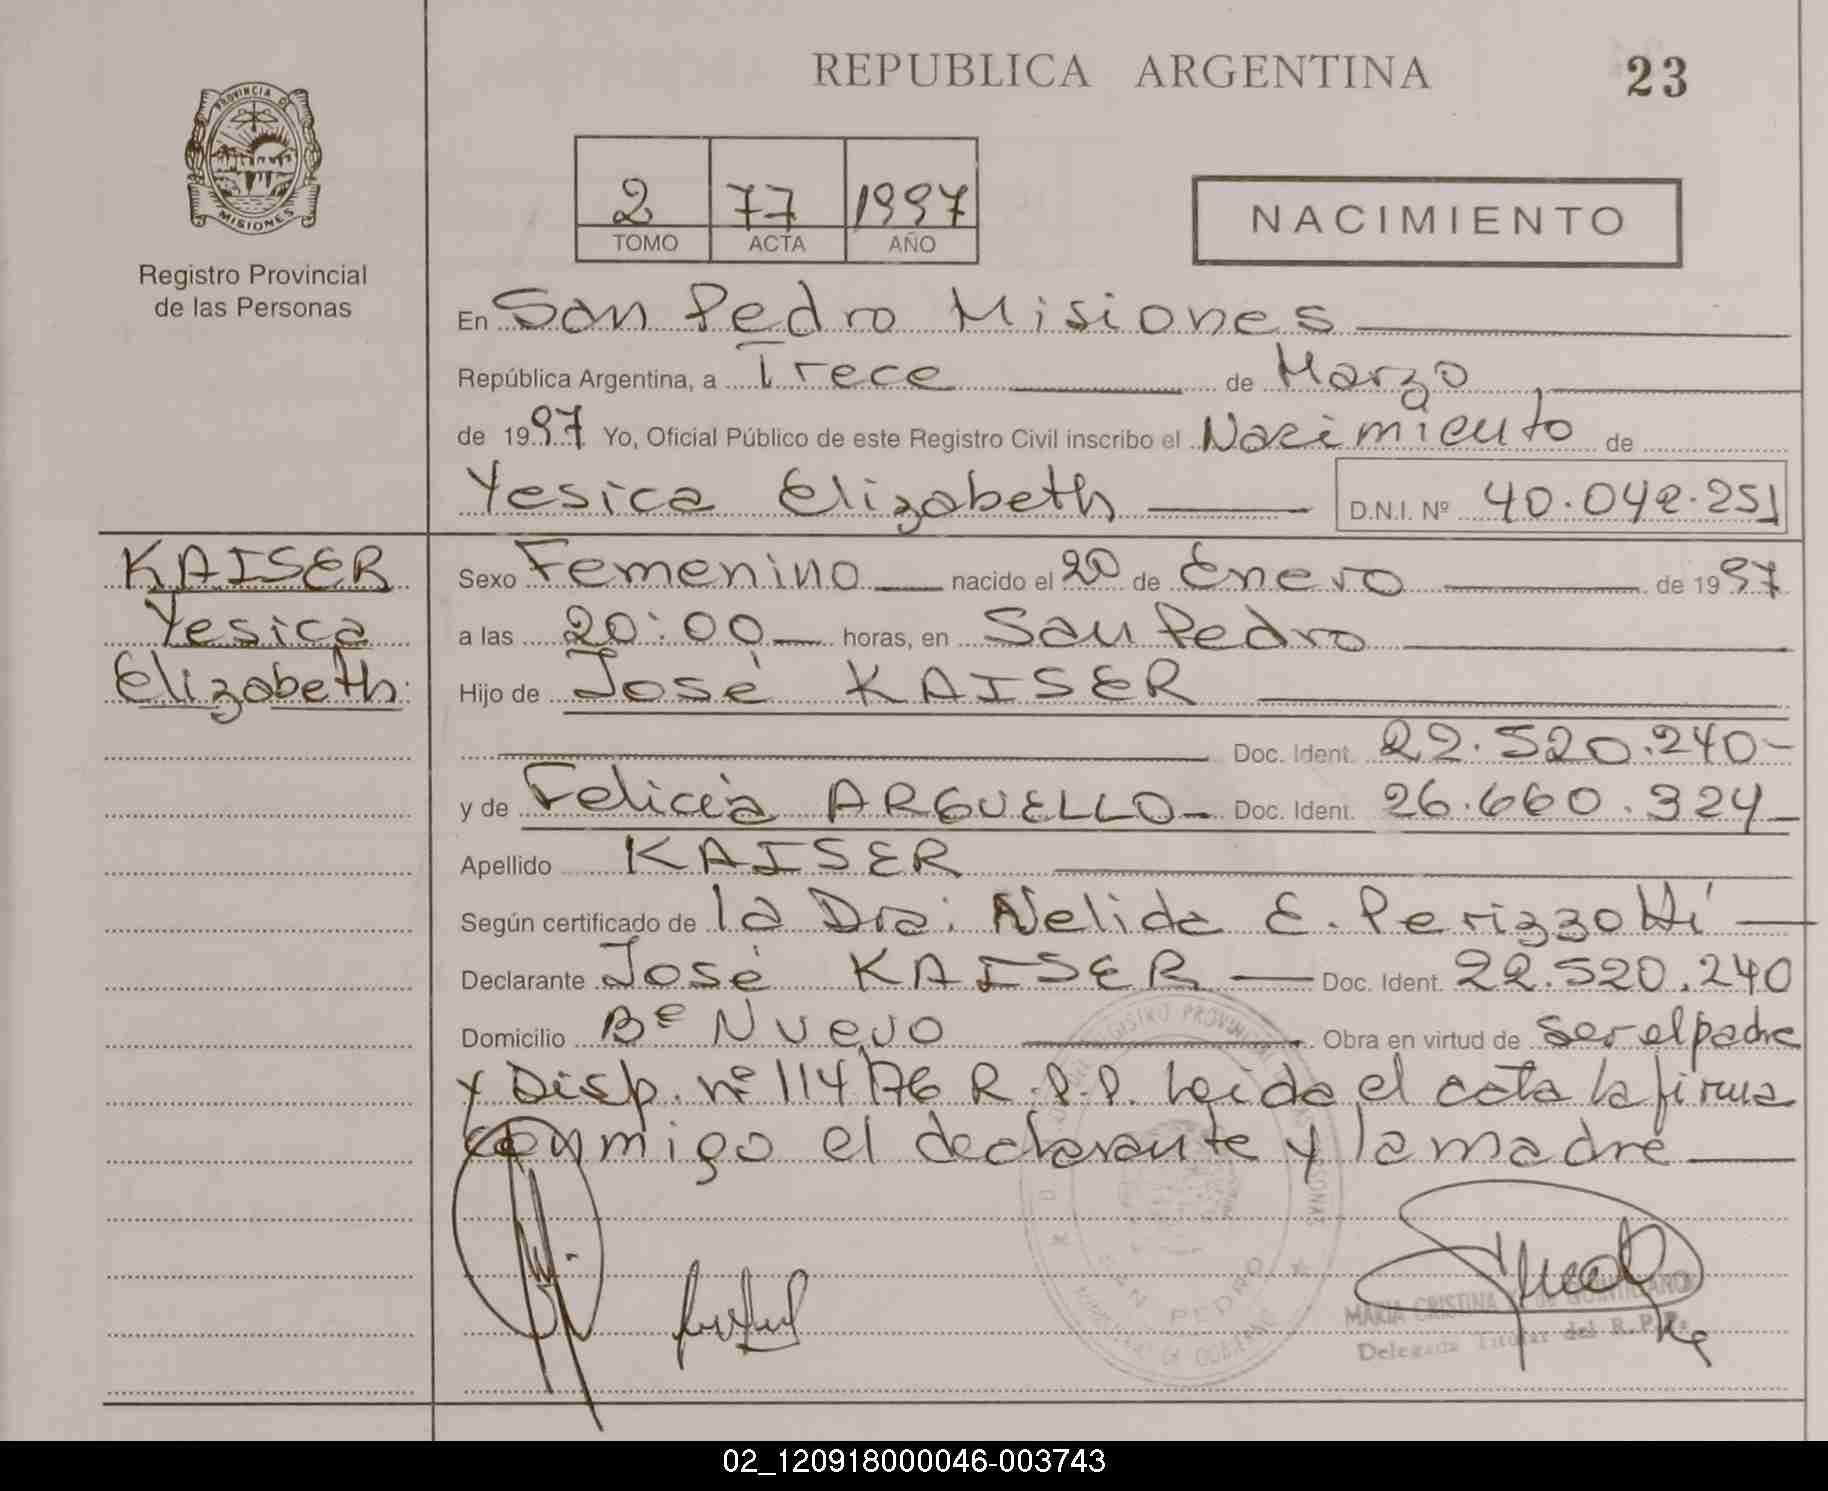 REPUBLICA ARGENTINA
23
PROVINCIA DE
MISIONES
Registro Provincial
de las Personas
2 77 1997
TOMO ACTA AÑO
NACIMIENTO
En San Pedro Misiones
República Argentina, a Trece de Marzo
de 1997 Yo, Oficial Público de este Registro Civil inscribo el Nacimiento de
Yesica Elizabeth D.N.I. Nº 40.042.251
KAISER
Yesica
Elizabeth.
Sexo Femenino nacido el 20 de Enero de 1997
a las 20:00 horas, en San Pedro
Hijo de José KAISER
Doc. Ident. 22.520.240-
y de Felicia ARGUELLO- Doc. Ident. 26.660.324
Apellido KAISER
Según certificado de la Dra. Nelida E. Perizzotti
Declarante José KAISER Doc. Ident. 22.520.240
Domicilio Bº Nuevo Obra en virtud de ser el padre
y Disp. nº 114/76 R.P.P. Leida el acta la firma
conmigo el declarante y la madre
REGISTRO PROVINCIAL
SAN PEDRO
MARIA CRISTINA
Delegada Titular del R.P.P.
02_120918000046-003743